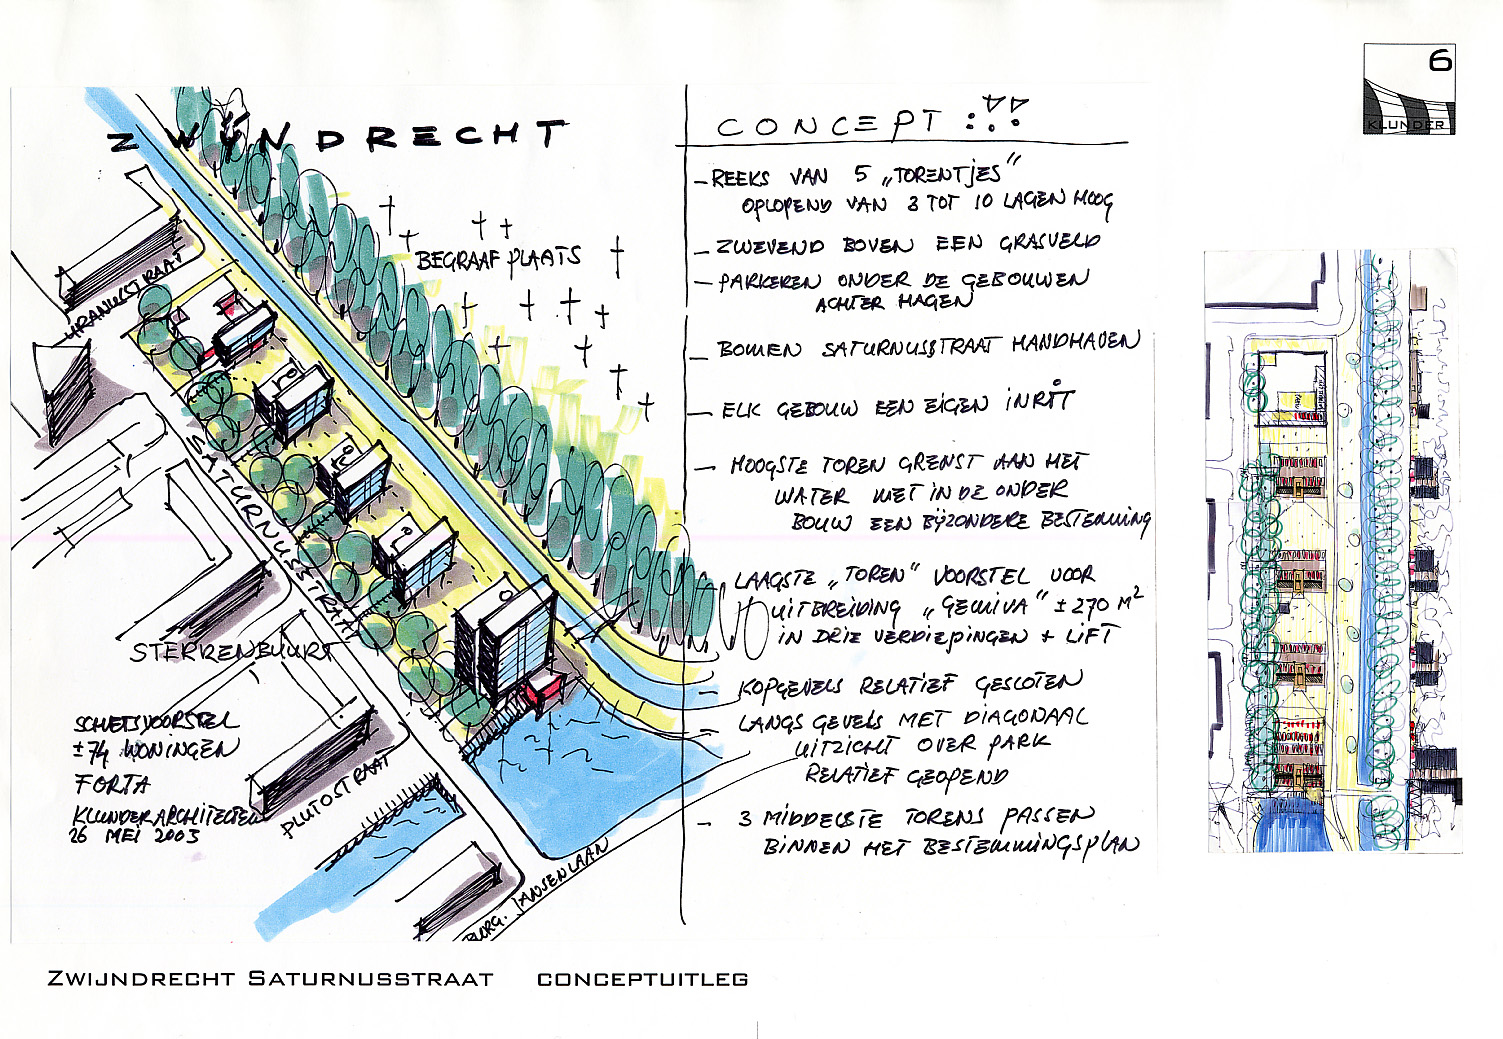 6
KLUNDER
ZWIJNDRECHT
BEGRAAFPLAATS
URANUSSTRAAT
SATURNUSSTRAAT
STERRENBUURT
SCHETSVOORSTEL
±74 WONINGEN
FORTA
KLUNDER ARCHITECTEN
26 MEI 2003
PLUTOSTRAAT
BURG. JANSENLAAN
CONCEPT
– REEKS VAN 5 „TORENTJES”
OPLOPEND VAN 3 TOT 10 LAGEN HOOG
– ZWEVEND BOVEN EEN GRASVELD
– PARKEREN ONDER DE GEBOUWEN
ACHTER HAGEN
– BOMEN SATURNUSSTRAAT HANDHAVEN
– ELK GEBOUW EEN EIGEN INRIT
– HOOGSTE TOREN GRENST AAN HET
WATER MET IN DE ONDER
BOUW EEN BIJZONDERE BESTEMMING
LAAGSTE „TOREN” VOORSTEL VOOR
UITBREIDING „GEMIVA” ±270 M²
IN DRIE VERDIEPINGEN + LIFT
– KOPGEVELS RELATIEF GESLOTEN
– LANGSGEVELS MET DIAGONAAL
UITZICHT OVER PARK
RELATIEF GEOPEND
– 3 MIDDELSTE TORENS PASSEN
BINNEN HET BESTEMMINGSPLAN
ZWIJNDRECHT SATURNUSSTRAAT CONCEPTUITLEG